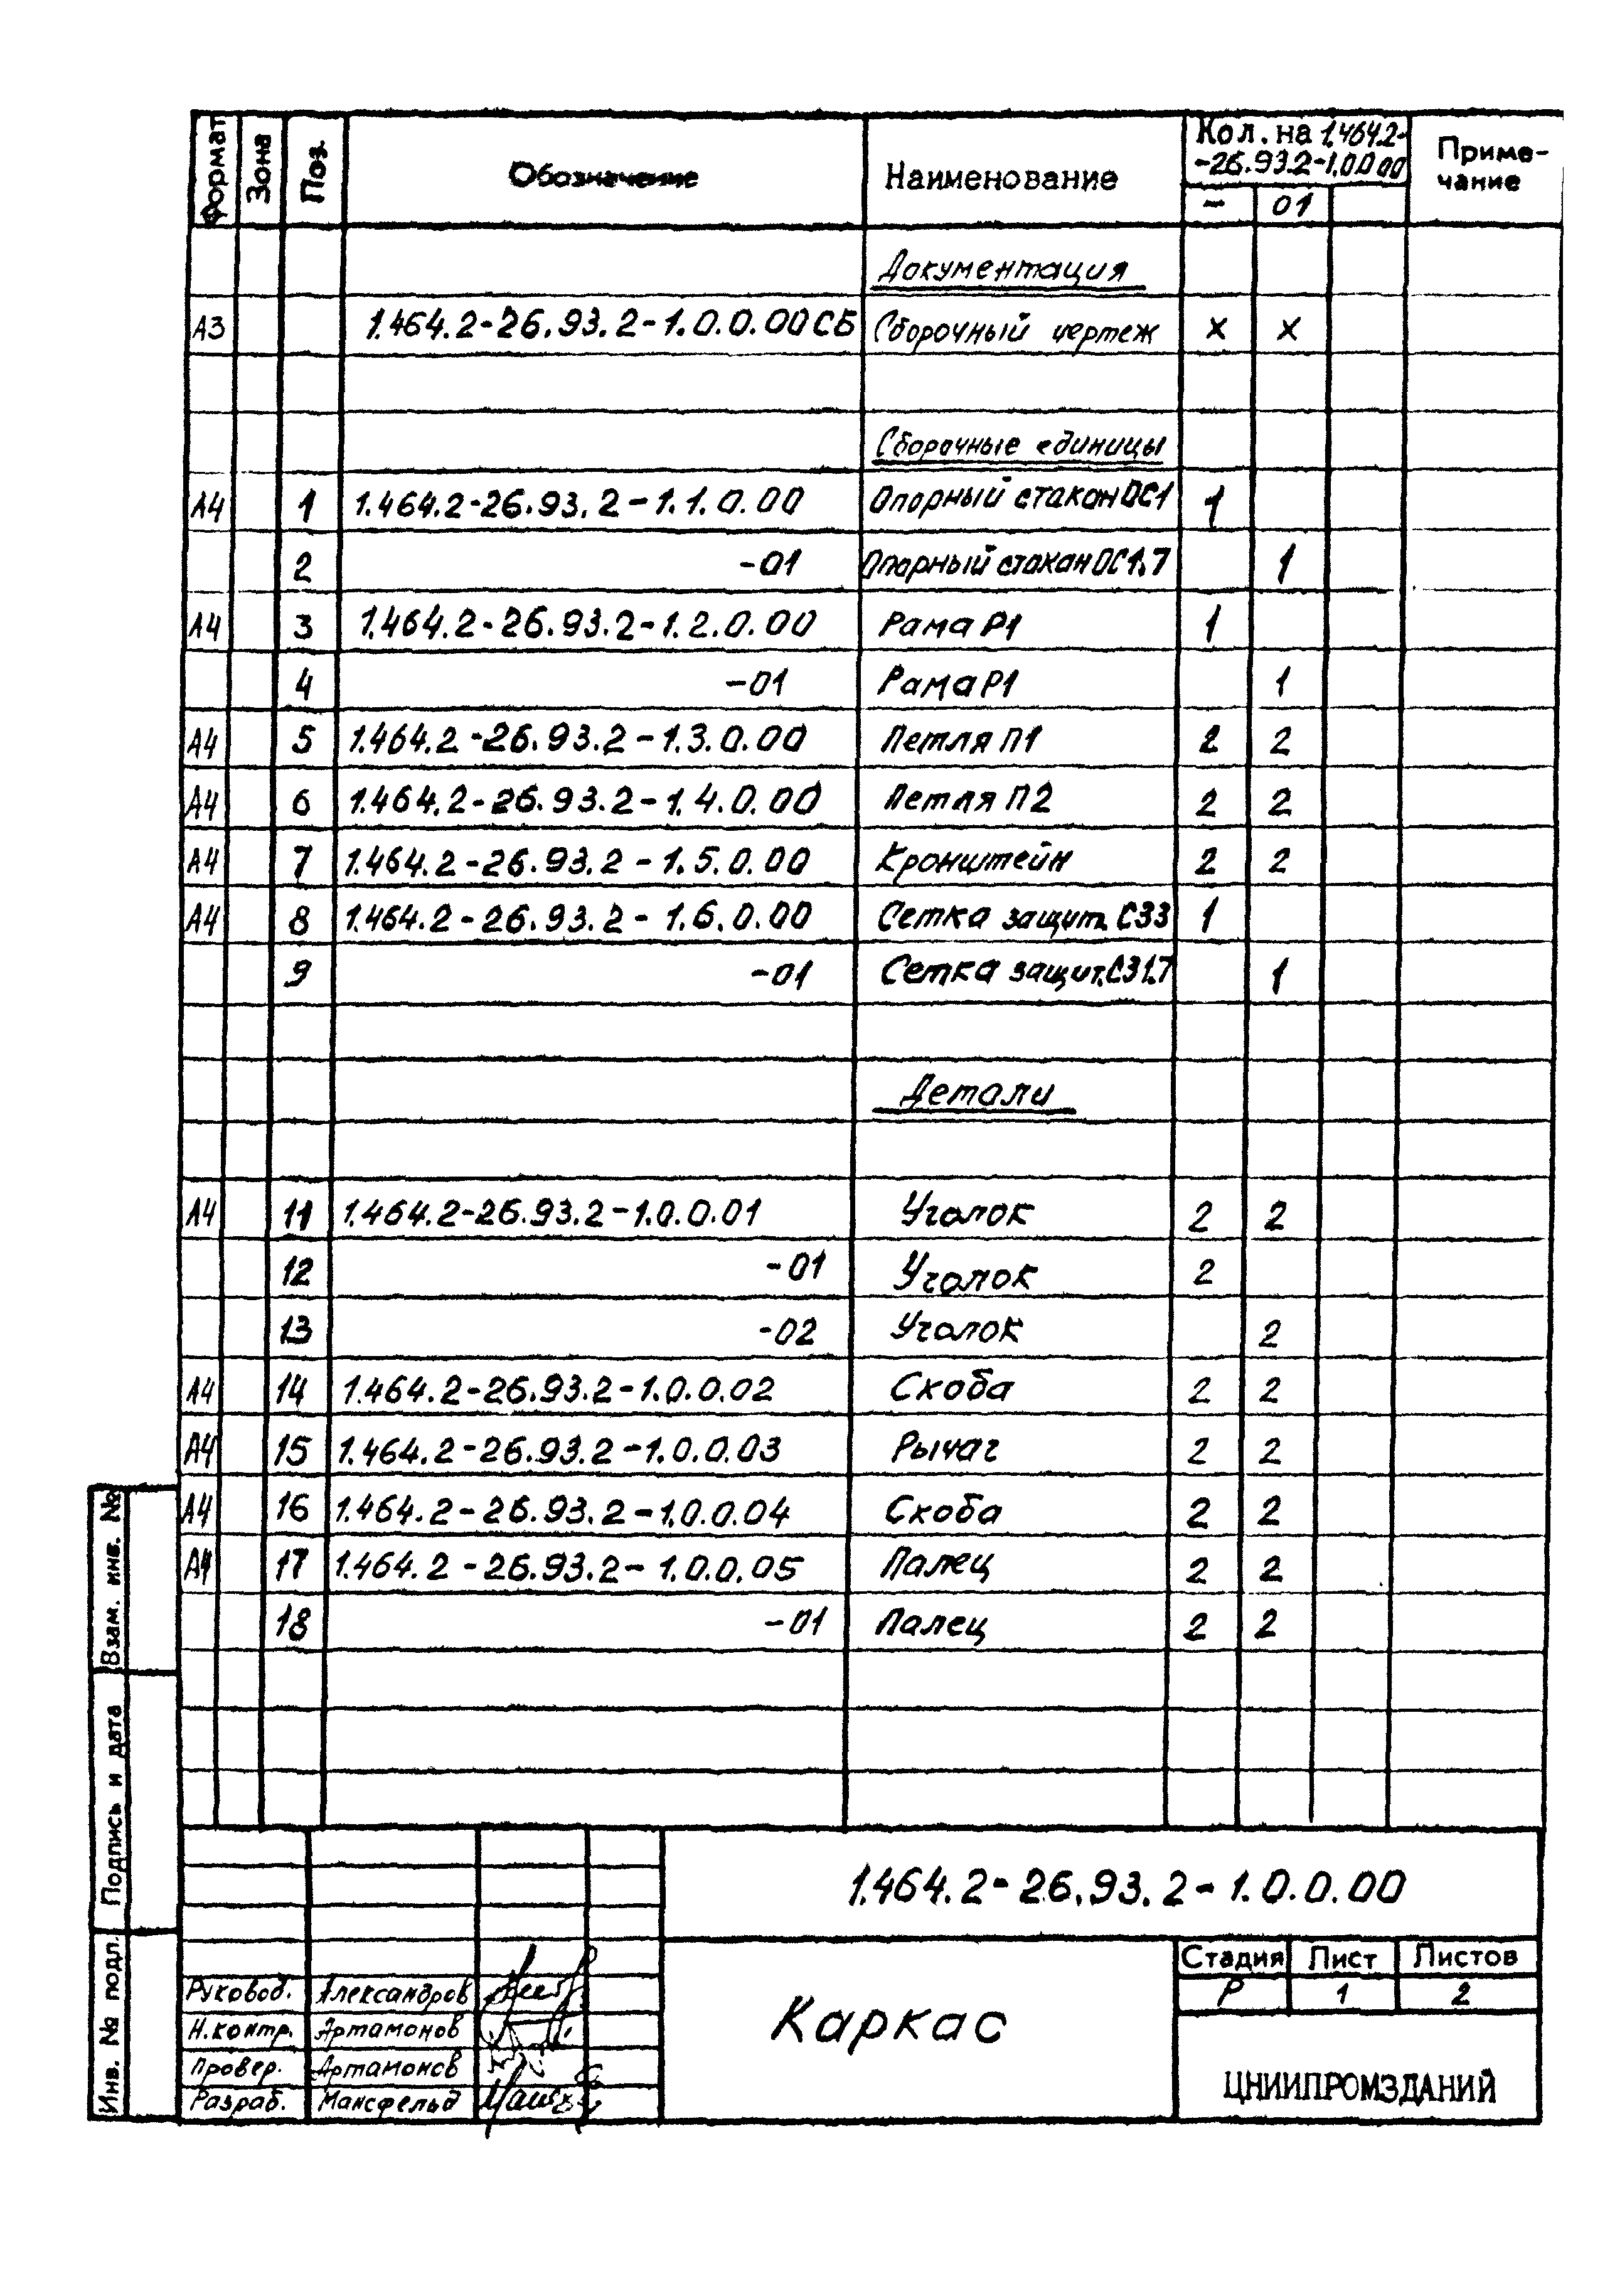 Формат Зона Поз. Обозначение Наименование Кол. на 1.464.2-
-26.93.2-1.0.0.00
Приме-
чание
- 01
Документация
А3 1.464.2-26.93.2-1.0.0.00СБ Сборочный чертеж х х
Сборочные единицы
А4 1 1.464.2-26.93.2-1.1.0.00 Опорный стакан ОС1 1
2 -01 Опорный стакан ОС1.7 1
А4 3 1.464.2-26.93.2-1.2.0.00 Рама Р1 1
4 -01 Рама Р1 1
А4 5 1.464.2-26.93.2-1.3.0.00 Петля П1 2 2
А4 6 1.464.2-26.93.2-1.4.0.00 Петля П2 2 2
А4 7 1.464.2-26.93.2-1.5.0.00 Кронштейн 2 2
А4 8 1.464.2-26.93.2-1.6.0.00 Сетка защит. СЗ3 1
9 -01 Сетка защит. СЗ1.7 1
Детали
А4 11 1.464.2-26.93.2-1.0.0.01 Уголок 2 2
12 -01 Уголок 2
13 -02 Уголок 2
А4 14 1.464.2-26.93.2-1.0.0.02 Скоба 2 2
А4 15 1.464.2-26.93.2-1.0.0.03 Рычаг 2 2
А4 16 1.464.2-26.93.2-1.0.0.04 Скоба 2 2
А4 17 1.464.2-26.93.2-1.0.0.05 Палец 2 2
18 -01 Палец 2 2
Взам. инв. №
Подпись и дата
Инв. № подл.
1.464.2-26.93.2-1.0.0.00
Руковод. Александров
Н.контр. Артамонов
Провер. Артамонов
Разраб. Мансфельд
Каркас
Стадия Лист Листов
Р 1 2
ЦНИИПРОМЗДАНИЙ